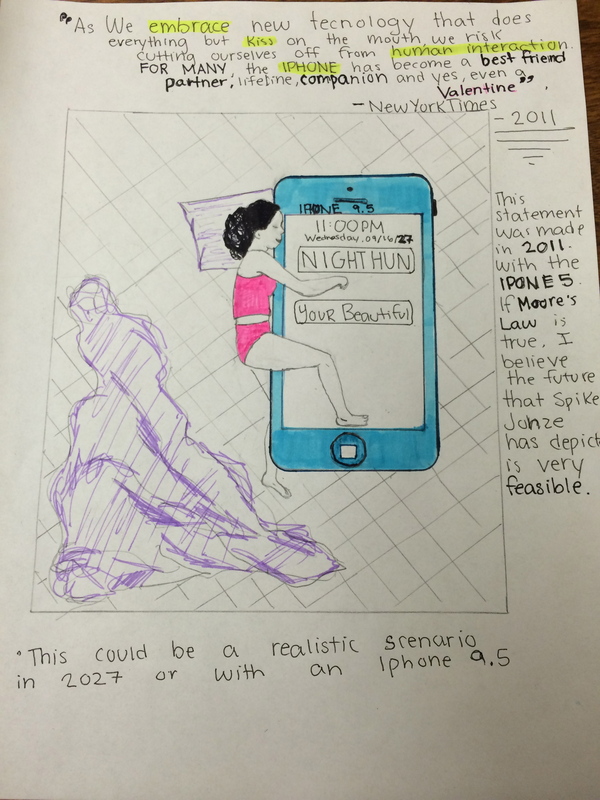 "As We embrace new tecnology that does
everything but Kiss on the mouth we risk
cutting ourselves off from human interaction.
FOR MANY, the IPHONE has become a best friend
partner, lifeline, companion and yes, even a
Valentine".
- New York Times
- 2011
IPHONE 9.5
11:00PM
Wednesday, 09/16/27
NIGHT HUN
YOUR Beautiful
This
statement
was made
in 2011.
with the
IPONE 5.
If Moore's
Law is
true, I
believe
the future
that Spike
Jonze
has depict
is very
feasible.
"This could be a realistic scenario
in 2027 or with an Iphone 9.5